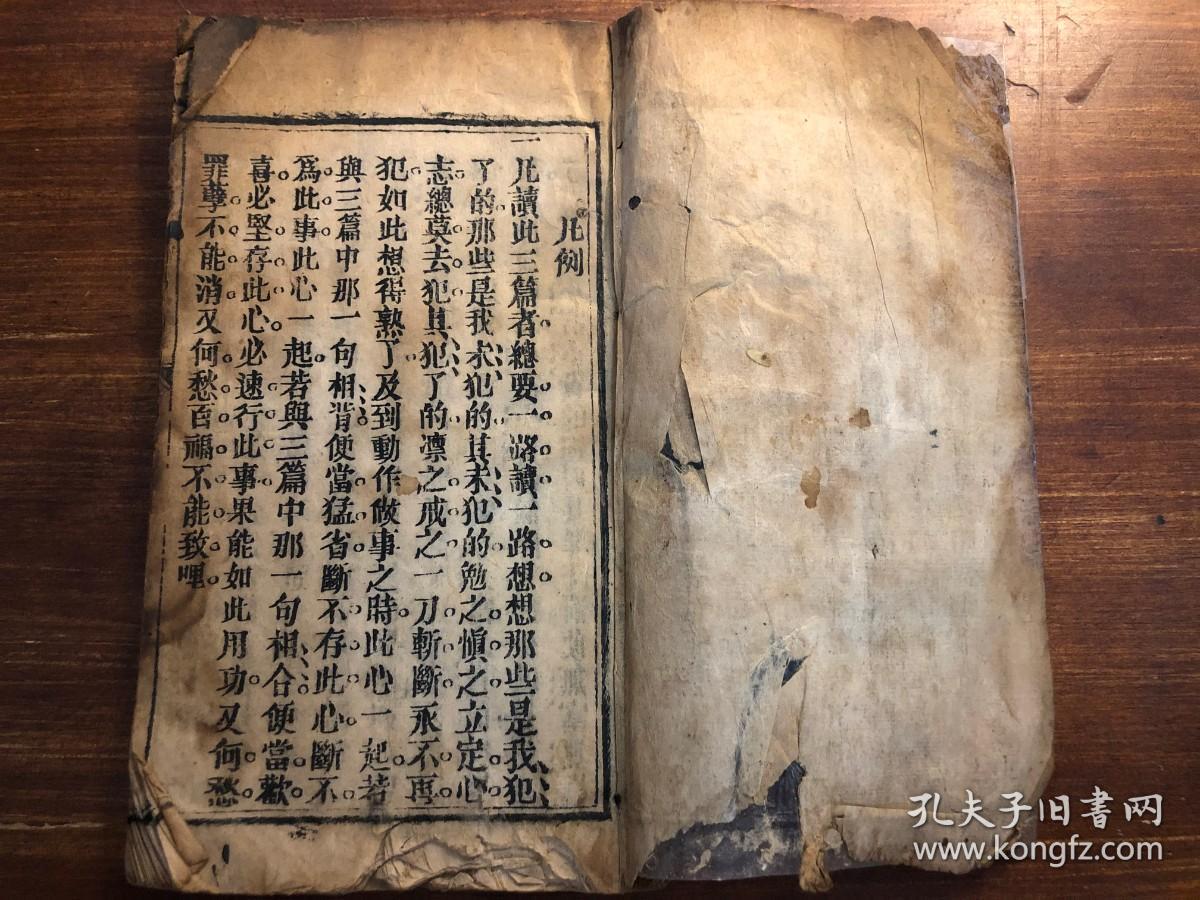 凡例
一凡讀此三篇者總要一路讀一路想想那些是我犯
了的那些是我未犯的其未犯的勉之慎之立定心
志總莫去犯其犯了的凛之戒之一刀斬斷永不再
犯如此想得熟了及到動作做事之時此心一起若
與三篇中那一句相背便當猛省斷不存此心斷不
爲此事此心一起若與三篇中那一句相合便當歡
喜必堅存此心必速行此事果能如此用功又何愁
罪孽不能消又何愁百福不能致哩
孔夫子旧书网
www.kongfz.com